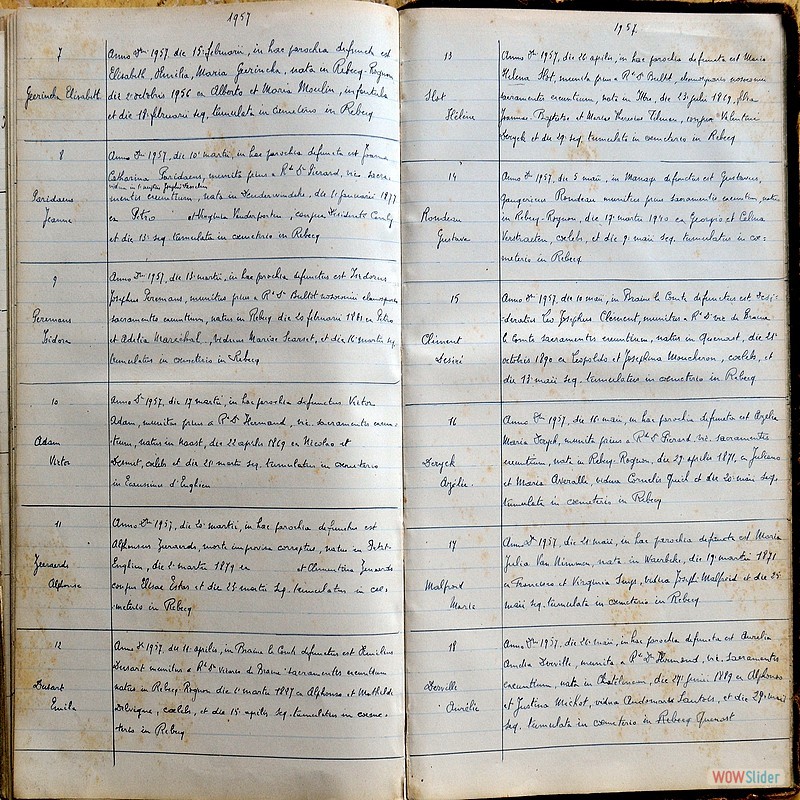 1957
7
Geerinckx Elisabeth
Anno Dni 1957, die 15 februarii, in hac parochia defuncta est
Elisabeth, Maria Geerinckx, nata in Rebecq-Rognon
die 2 octobris 1956 ex Alberto et Maria Moulin,
et die 18 februarii seq. tumulata in cemeterio in Rebecq
8
Paridaens
Jeanne
Anno Dni 1957, die 10 martii, in hac parochia defuncta est Joanna
Catharina Paridaens, munita prius a Rdo D. Pierard, vic. sacra-
mentis exeuntium, nata in Denderwindeke, die 11 januarii 1877
ex Petro et
et die 13 seq. tumulata in cemeterio in Rebecq
9
Peremans
Isidore
Anno Dni 1957, die 13 martii, in hac parochia defunctus est Isidorus
Josephus Peremans, munitus prius a Rdo D. Bultot
sacramentis exeuntium, natus in Rebecq die 20 februarii 1881 ex Petro
et Adelia Maréchal, viduus Mariae et die 16 martii seq.
tumulatus in cemeterio in Rebecq
10
Adam
Victor
Anno Dni 1957, die 17 martii, in hac parochia defunctus Victor
Adam, munitus prius a Rdo D. Hermand, vic. sacramentis exeun-
tium, natus in Naast, die 22 aprilis 1869 ex Nicolao et
caelebs et die 21 martii seq. tumulatus in cemeterio
in Ecaussinne d'Enghien
11
Alphonse
Anno Dni 1957, die 20 martii, in hac parochia defunctus est
Alphonsus morte improvisa correptus, natus in Petit-
Enghien, die 2 martii 1879 ex et Clementina
conjux Elisae et die 23 martii seq. tumulatus in ce-
meterio in Rebecq
12
Dusart
Emile
Anno Dni 1957, die 11 aprilis, in Braine le Comte defunctus est Aemilius
Dusart munitus a Rdo D. Vicario de Braine sacramentis exeuntium
natus in Rebecq Rognon die 11 martii 1887 ex Alphonso et Mathilde
caelebs, et die 15 aprilis seq. tumulatus in ceme-
terio in Rebecq
1957
13
Slot
Hélène
Anno Dni 1957, die 26 aprilis, in hac parochia defuncta est Maria
Helena Slot, munita prius a Rdo D. Bultot,
sacramentis exeuntium, nata in Ittre, die 23 julii 1869, filia
Joannis Baptistae et Mariae Theresiae Tilman, conjux Valentini
Deryck et die 29 seq. tumulata in cemeterio in Rebecq
14
Rondeau
Gustave
Anno Dni 1957, die 5 maii, in Manage defunctus est Gustavus,
Rondeau munitus prius sacramentis exeuntium, natus
in Rebecq-Rognon, die 19 martii 1940 ex Georgio et Celina
Verstraeten, caelebs, et die 9 maii seq. tumulatus in ce-
meterio in Rebecq
15
Clément
Désiré
Anno Dni 1957, die 10 maii, in Braine le Comte defunctus est Desi-
deratus Leo Josephus Clement, munitus a Rdo D. vic de Braine
le Comte sacramentis exeuntium, natus in Quenast, die 21
octobris 1890 ex Leopoldo et Josephina Moucheron, caelebs, et
die 13 maii seq. tumulatus in cemeterio in Rebecq
16
Deryck
Azélie
Anno Dni 1957, die 16 maii, in hac parochia defuncta est Azelia
Maria Deryck, munita prius a Rdo D. Pierard vic. sacramentis
exeuntium, nata in Rebecq-Rognon, die 27 aprilis 1871, ex Juliano
et Maria vidua Cornelii et die 20 maii seq.
tumulata in cemeterio in Rebecq
17
Malfroid
Marie
Anno Dni 1957, die 21 maii, in hac parochia defuncta est Maria
Julia Van Nimmen, nata in Waerbeke, die 19 martii 1871
ex Francisco et Virginia vidua Josephi Malfroid et die 25
maii seq. tumulata in cemeterio in Rebecq
18
Derville
Aurélie
Anno Dni 1957, die 26 maii, in hac parochia defuncta est Aurelia
Amelia Derville, munita a Rdo D. Hermand, vic. sacramentis
exeuntium, nata in Chatelineau, die 27 junii 1889 ex Alphonso
et Justina Michot, vidua et die 29 maii
seq. tumulata in cemeterio in Rebecq Quenast
WOWSlider